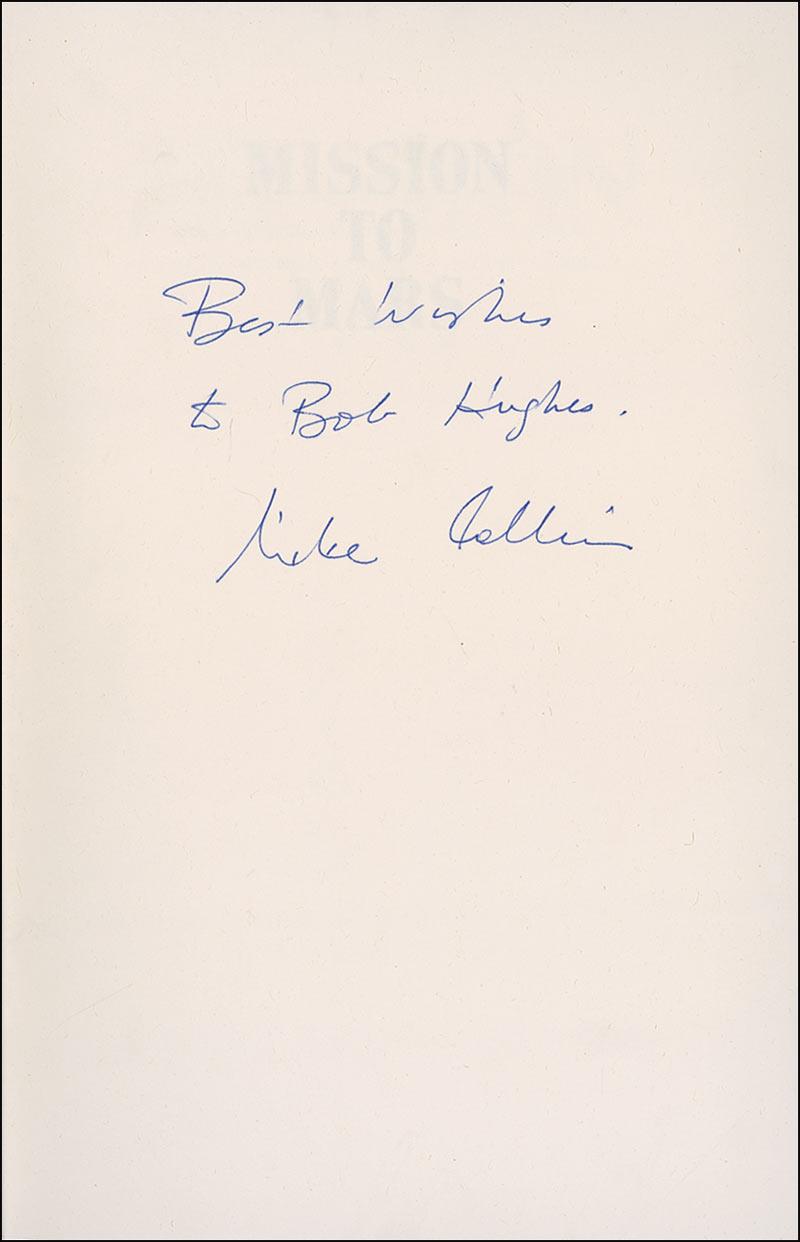 MISSION
TO
MARS
Best Wishes
to Bob Hughes.
Mike Collins